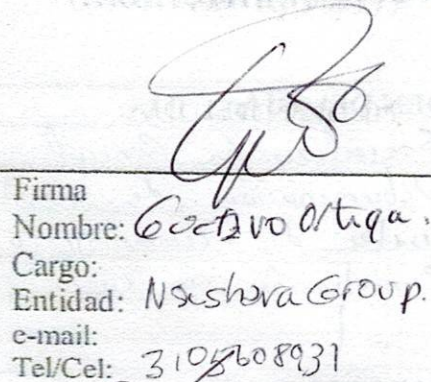 Firma
Nombre: Gustavo Ortega.
Cargo:
Entidad: Group.
e-mail:
Tel/Cel: 3105608931